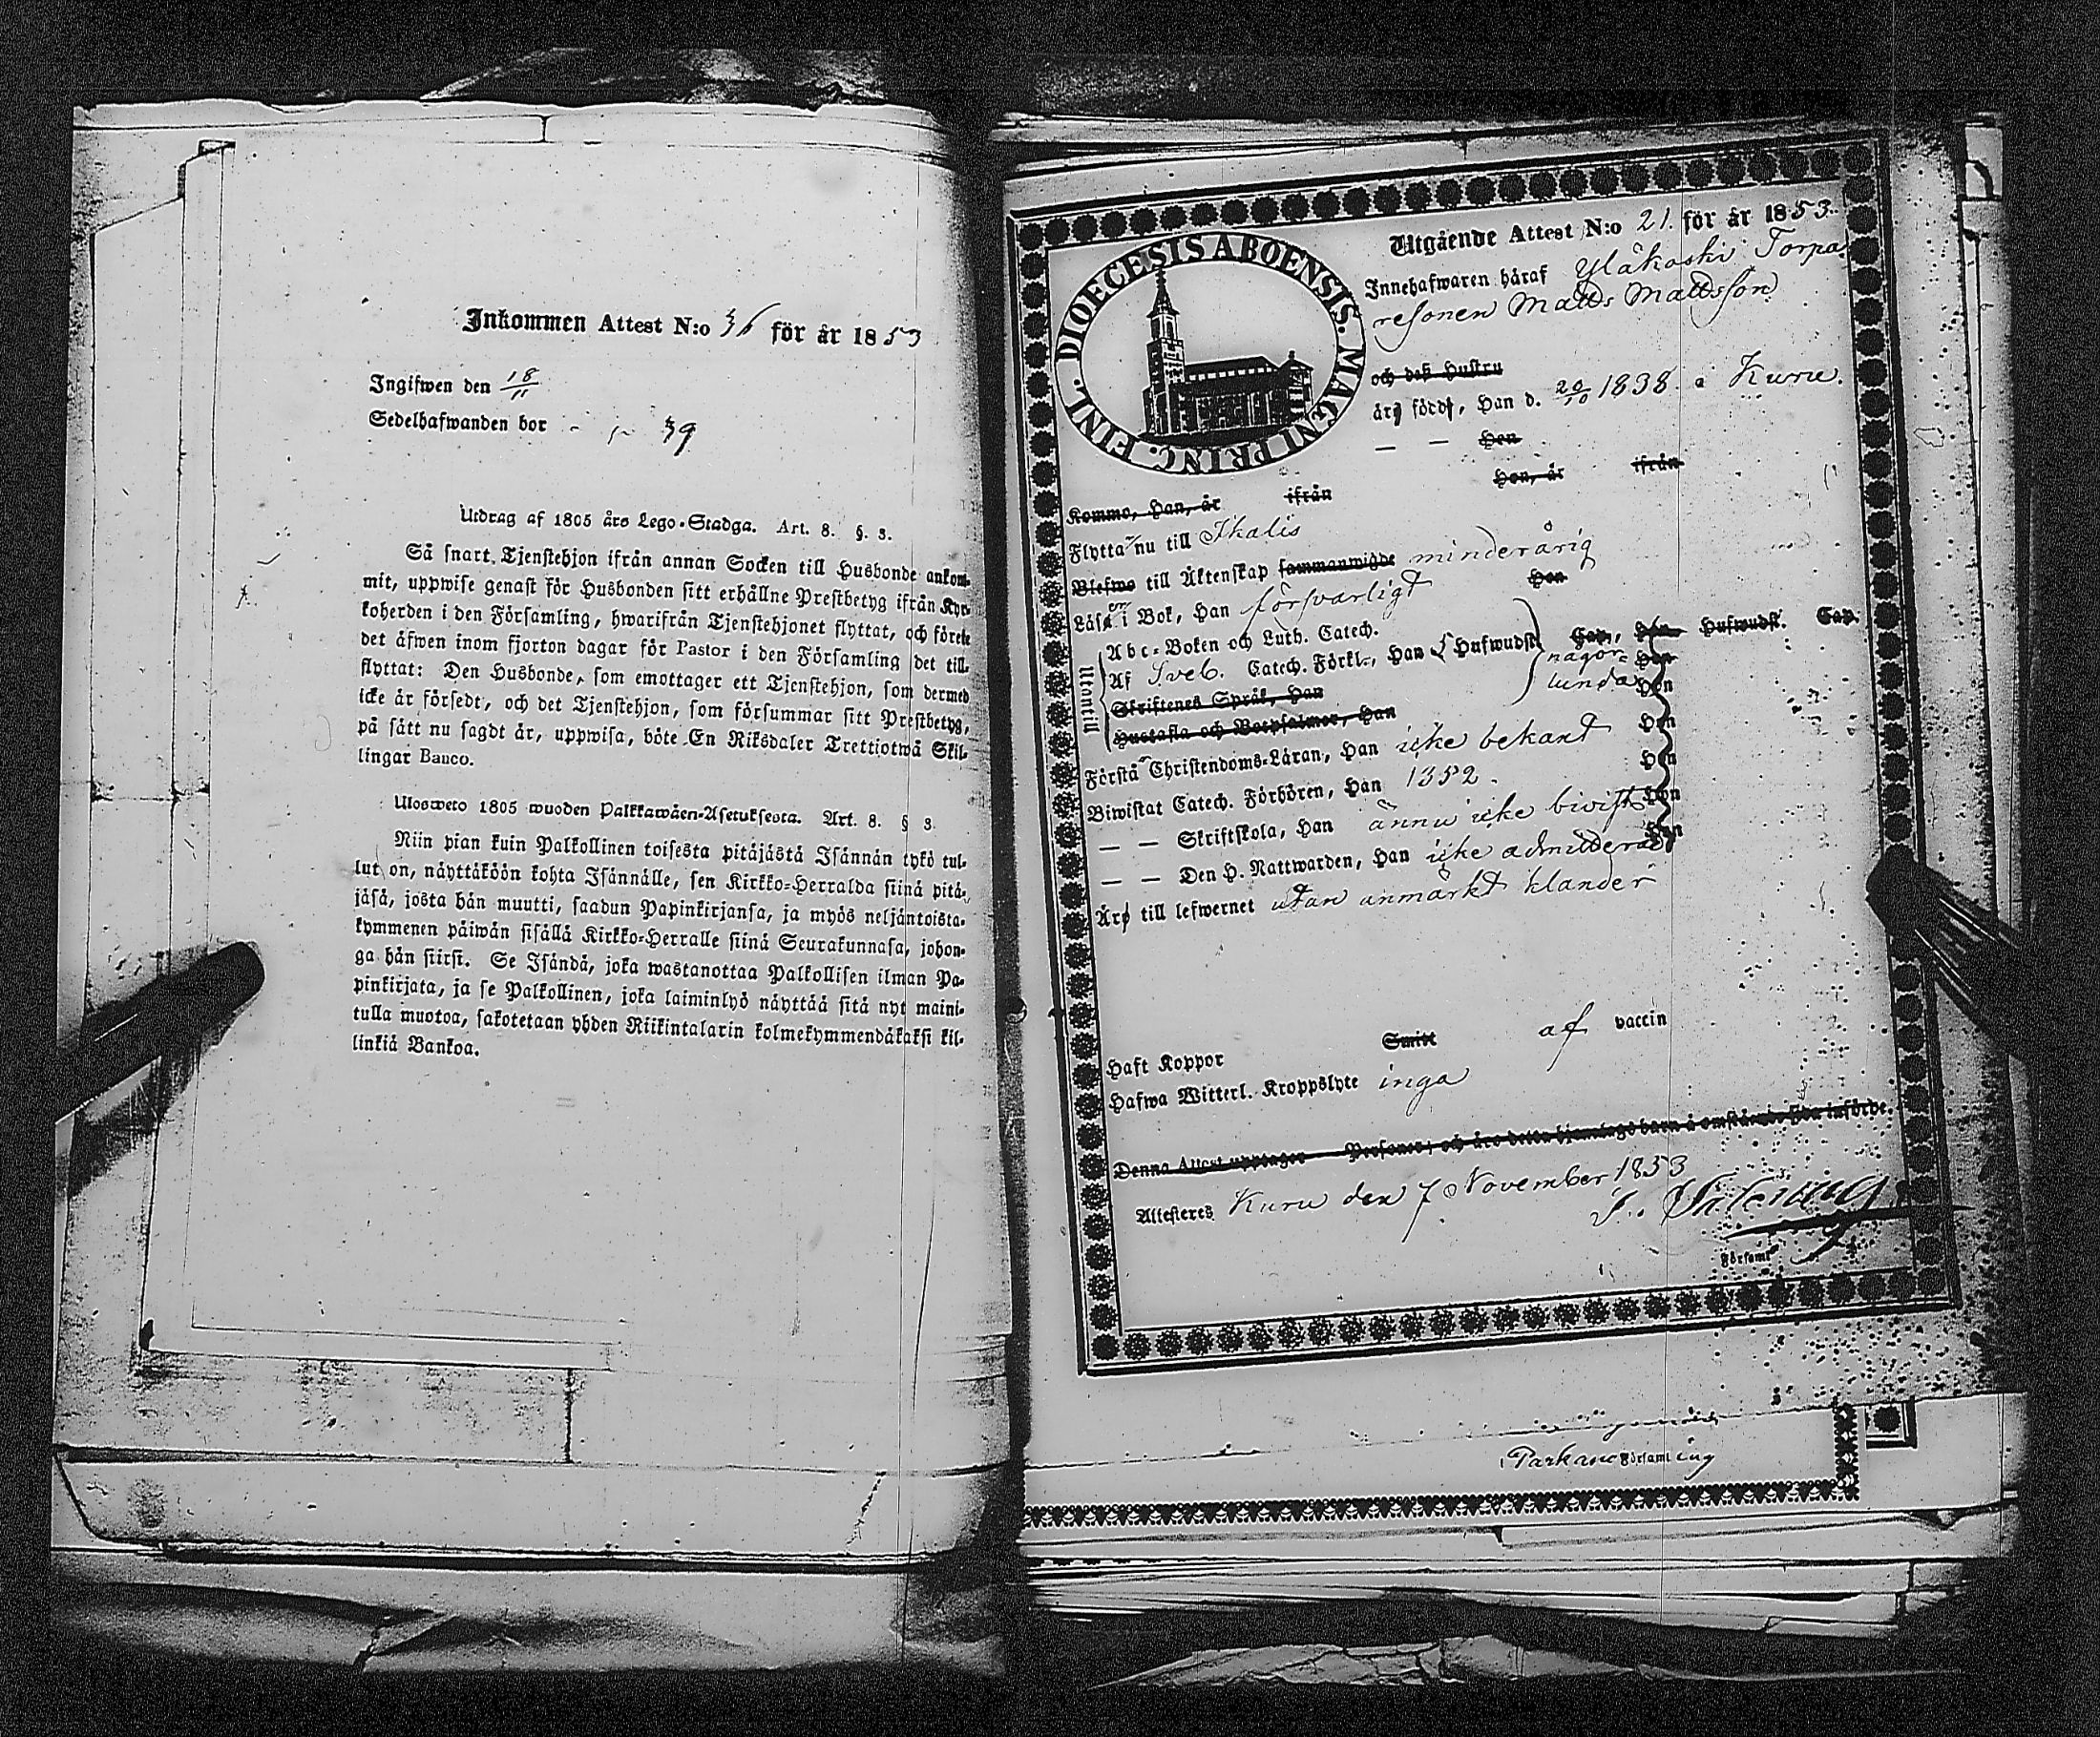 Inkommen Attest N:o 36 för år 1853
Ingifwen den 18/11
Sedelhafwanden bor - - 39
Utdrag af 1805 års Lego-Stadga. Art. 8. §. 3.
Så snart Tjenstehjon ifrån annan Socken till Husbonde ankom-
mit, uppwise genast för Husbonden sitt erhållne Prestbetyg ifrån Kyr-
koherden i den Församling, hwarifrån Tjenstehjonet flyttat, och förete
det äfwen inom fjorton dagar för Pastor i den Församling det till-
flyttat: Den Husbonde, som emottager ett Tjenstehjon, som dermed
icke är försedt, och det Tjenstehjon, som försummar sitt Prestbetyg,
på sätt nu sagdt är, uppwisa, böte En Riksdaler Trettiotwå Skil-
lingar Banco.
Ulosweto 1805 wuoden Palkkawäen-Asetuksesta. Art. 8. § 3.
Niin pian kuin Palkollinen toisesta pitäjästä Isännän tykö tul-
lut on, näyttäköön kohta Isännälle, sen Kirkko-Herralda siinä pitä-
jäsä, josta hän muutti, saadun Papinkirjansa, ja myös neljäntoista-
kymmenen päiwän sisällä Kirkko-Herralle siinä Seurakunnasa, johon-
ga hän siirsi. Se Isändä, joka wastanottaa Palkollisen ilman Pa-
pinkirjata, ja se Palkollinen, joka laiminlyö näyttää sitä nyt maini-
tulla muotoa, sakotetaan yhden Riikintalarin kolmekymmendäkaksi kil-
linkiä Bankoa.
DIOECESIS ABOENSIS. MAGNI PRINC. FINL.
Utgående Attest N:o 21. för år 1853.
Innehafwaren häraf Yläkoski Torpa
resonen Matts Mattsson
och dess Hustru
äro född, Han d. 20/10 1838. i Kuru.
— — Hon
Komme, Han, år ifrån Hon, år ifrån
Flytta nu till Ikalis
Blefwo till Äktenskap sammanwigde minderårig
Läser i Bok, Han försvarligt Hon
Utantill
Abc-Boken och Luth. Catech.
Af Sveb. Catech. Förkl., Han Hufwudst. Cap., Hon Hufwudst. Cap.
någor-
lunda
Skriftenes Språk, Han Hon
Hustafla och Botpsalmer, Han Hon
Förstå Christendoms-Läran, Han icke bekant Hon
Biwistat Catech. Förhören, Han 1352. Hon
— — Skriftskola, Han ännu icke bivist Hon
— — Den H. Nattwarden, Han icke admitterad Hon
Äro till lefwernet utan anmärkt klander
Haft Koppor Smitt af vaccin
Hafwa Witterl. Kroppslyte inga
Denna Attest upptager Personer, och äro deras hjemlings barn å omstående sida införde.
Attesteres Kuru den 7 November 1853
Församl
Parkano Församling